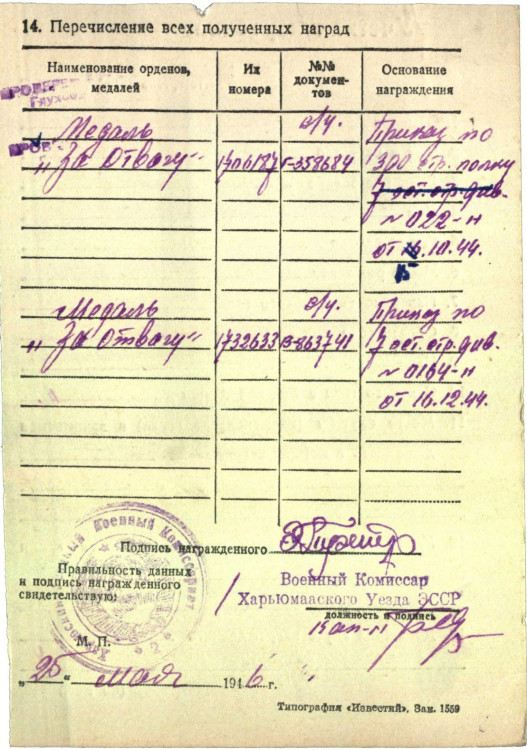 14. Перечисление всех полученных наград
Наименование орденов, медалей
Их номера
№№ документов
Основание награждения
ПРОВЕРЕ
Медаль
„За Отвагу“
1706187
с/у.
Г-358684
Приказ по
300 стр. полку
7 эст. стр. див.
~ 022-н
от 16.10.44.
15
Медаль
„За Отвагу“
1732633
с/у.
В-863741
Приказ по
7 эст. стр. див.
~ 0164-н
от 16.12.44.
Подпись награжденного
Правильность данных
и подпись награжденного
свидетельствую:
Военный Комиссар
Харьюмааского Уезда ЭССР
должность и подпись
Кап-н
М. П.
Военный Комиссариат
„25“ мая 1946 г.
Типография «Известий». Зак. 1559